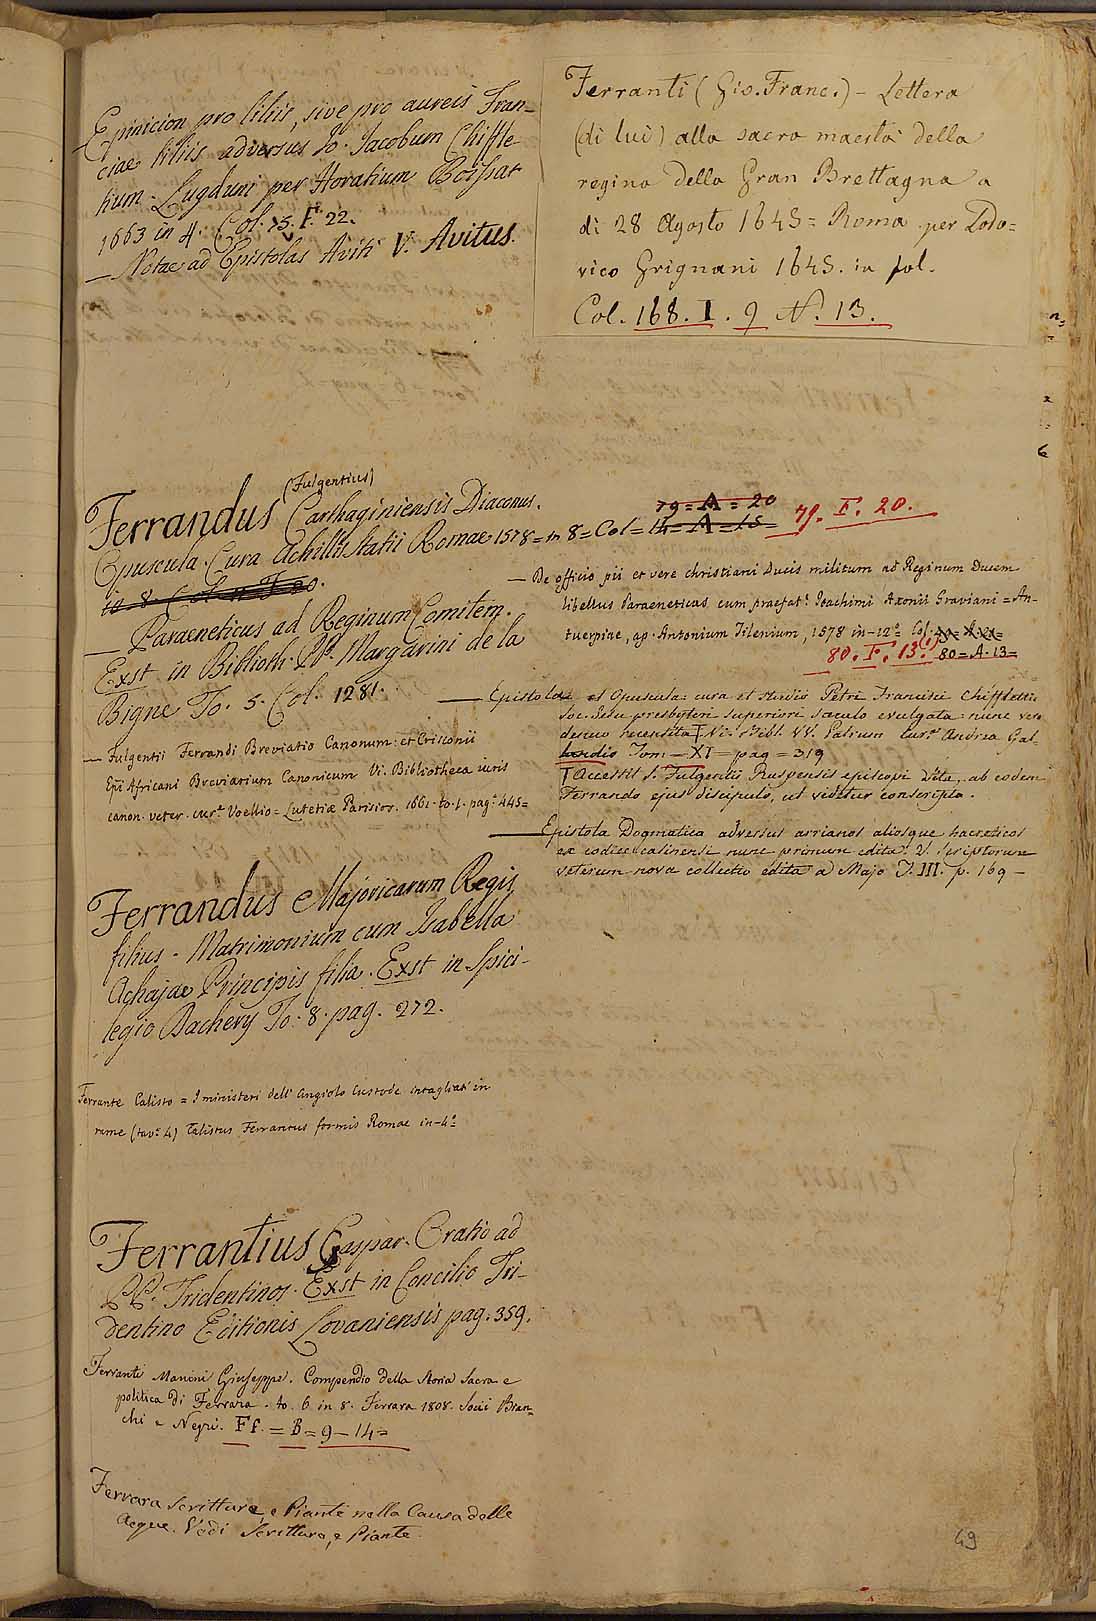 Epinicion pro liliis, sive pro aureis Fran=
ciae liliis adversus Jo. Jacobum Chiffle
tium. Lugduni per Horatium Boissat
1663 in 4. Col. 75. F. 22.
— Notae ad Epistolas Aviti V. Avitus.
Ferranti (Gio. Franc.) – Lettera
(di lui) alla sacra maestà della
regina della Gran Brettagna a
di 28 Agosto 1645 = Roma per Lodo=
vico Grignani 1645. in fol.
Col. 168. I. 9 N. 13.
(Fulgentius)
Ferrandus Carthaginiensis Diaconus.
Opuscula. Cura Achillis Statii Romae 1578 = in 8 = Col = 14 = A = 15 =
79 = A = 20
79. F. 20.
in 8 Col 11 F 20.
— Paraeneticus ad Reginum Comitem.
Exst in Biblioth. PP. Margarini de la
Bigne To. 5. Col. 1281.
— Fulgentii Ferrandi Breviatio Canonum: et Crisconii
Epi Africani Breviarium Canonicum Vi. Bibliotheca iuris
canon. veter. cur.e Voellio = Lutetiae Parisior. 1661. to. 1. pag.e 445 =
— De officio pii et vere christiani Ducis militum ad Reginum Ducem
libellus Paraeneticus cum praefat.e Joachimi Axonii Graviani = An-
tuerpiae, ap. Antonium Tilenium, 1578 in-12.o Col.
80. F. 13. (1) 80 = A. 13 =
— Epistolae et Opuscula: cura et studio Petri Francisci Chiffletii
Soc. Jesu presbyteri superiori saeculo evulgata: nunc vero
denuo recensita † Vi. Bibl. VV. Patrum cur.e Andrea Gal-
landio Tom – XI – pag = 319
† Accessit S. Fulgentii Ruspensis episcopi Vita, ab eodem
Ferrando ejus discipulo, ut videtur conscripta.
— Epistola Dogmatica adversus arrianos aliosque haereticos
ex codice casinensi nunc primum edita. V. Scriptorum
veterum nova collectio edita a Majo T. III. p. 169 –
Ferrandus Majoricarum Regis
filius. Matrimonium cum Isabella
Achajae Principis filia. Exst in Spici-
legio Dachery To. 8. pag. 272.
Ferrante Calisto = I ministeri dell'angiolo Custode intagliati in
rame (tav.e 4) Calistus Ferrantus formis Romae in-4.o
Ferrantius Gaspar. Oratio ad
PP. Tridentinos. Exst in Concilio Tri-
dentino Editionis Lovaniensis pag. 359.
Ferranti Manini Giuseppe. Compendio della Storia Sacra e
politica di Ferrara. to. 6 in 8. Ferrara 1808. Socii Bian=
chi e Negri. Ff. = B = 9 – 14 =
Ferrara Scritture, e Piante nella Causa delle
Acque. Vedi Scritture, e Piante.
49